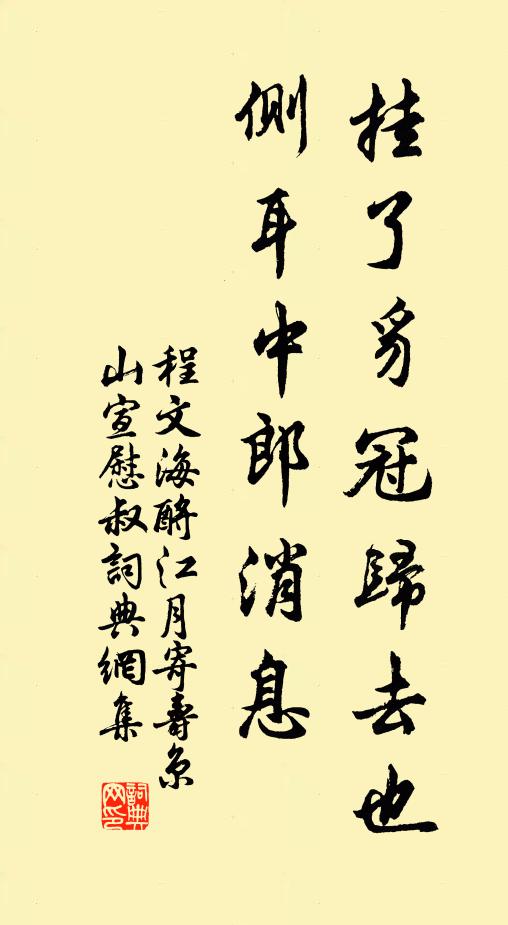 挂了豸冠歸去也
側耳中郎消息
程文海酹江月寄壽京
山宣慰叔詞典網集
詞典
网印